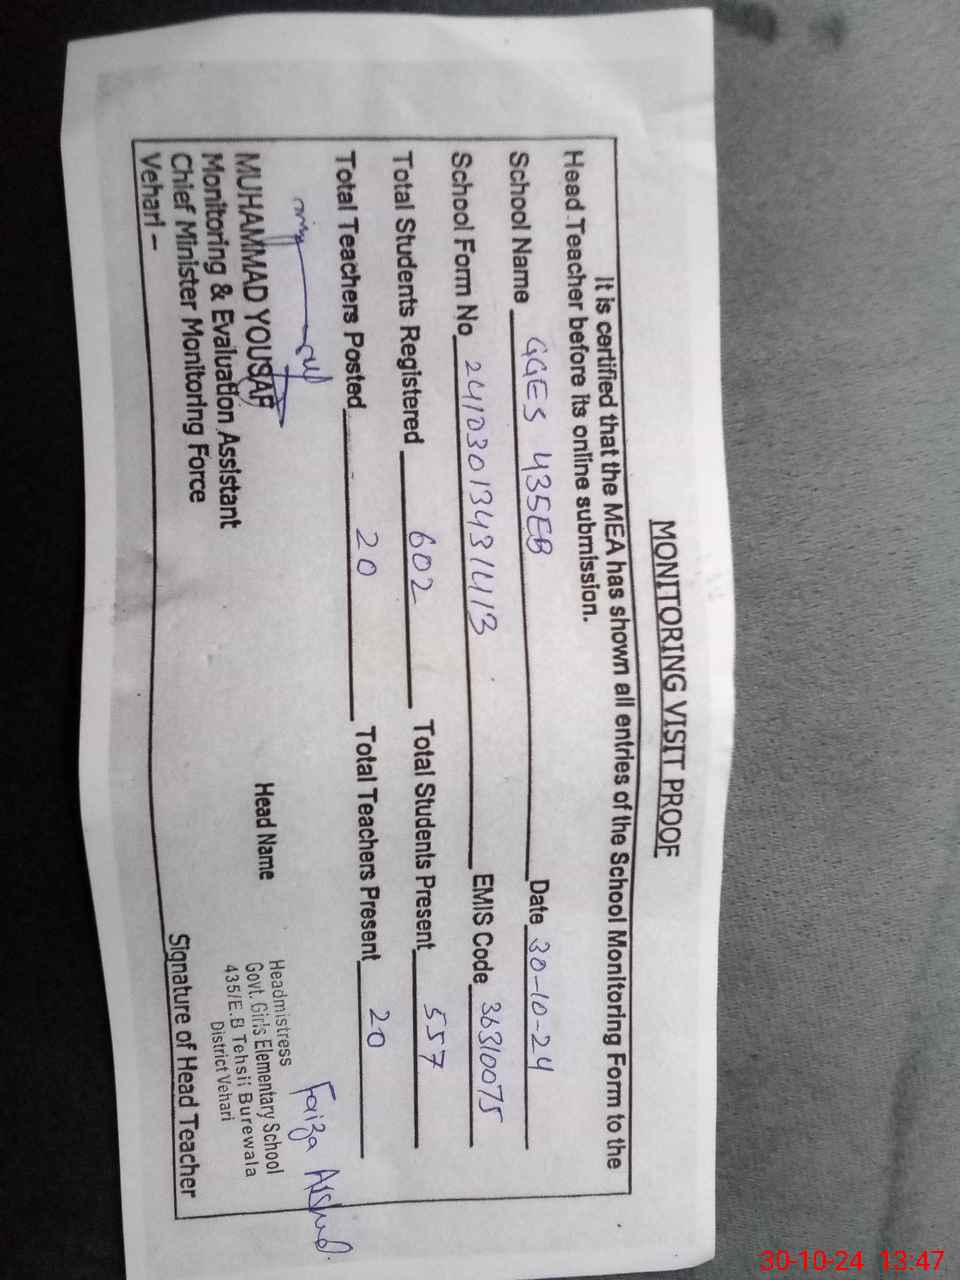 MONITORING VISIT PROOF
It is certified that the MEA has shown all entries of the School Monitoring Form to the
Head Teacher before its online submission.
School Name GGES 435EB Date 30-10-24
School Form No 24103013431413 EMIS Code 36310075
Total Students Registered 602 Total Students Present 557
Total Teachers Posted 20 Total Teachers Present 20
Faiza Arshad
MUHAMMAD YOUSAF
Monitoring & Evaluation Assistant
Chief Minister Monitoring Force
Vehari –
Head Name
Headmistress
Govt. Girls Elementary School
435/E.B Tehsil Burewala
District Vehari
Signature of Head Teacher
30-10-24 13:47